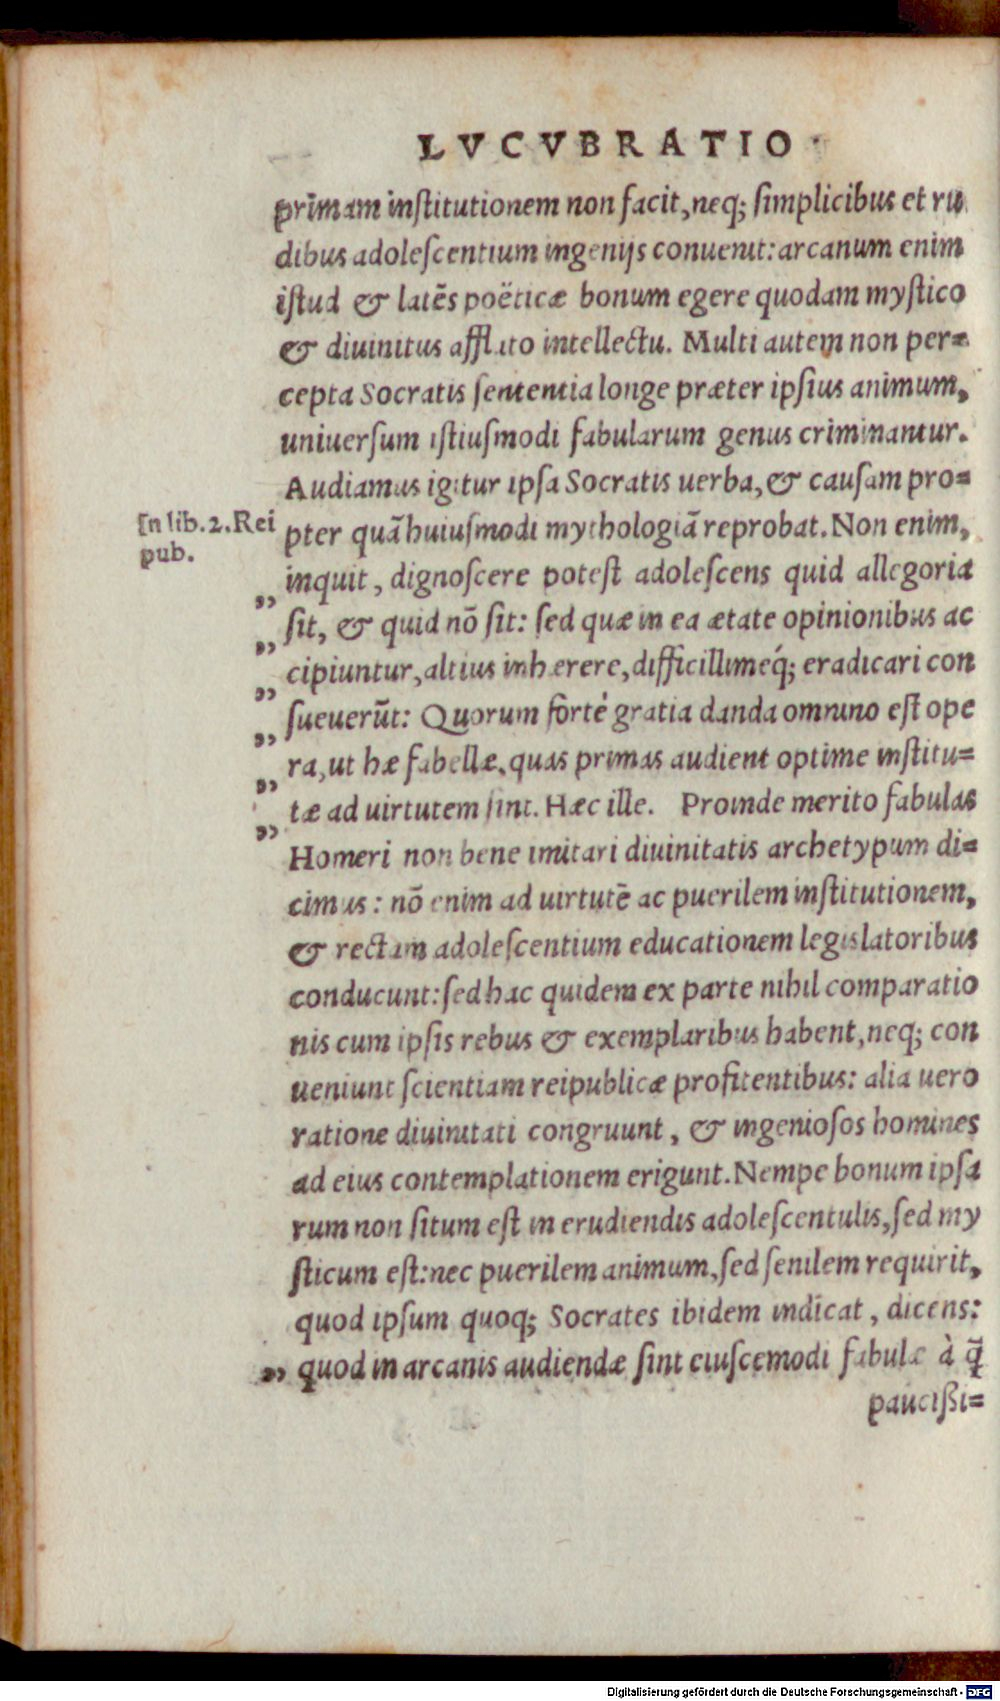 LVCVBRATIO
primam inſtitutionem non facit, neq; ſimplicibus et ru
dibus adoleſcentium ingenijs conuenit: arcanum enim
iſtud & latēs poëticæ bonum egere quodam myſtico
& diuinitus afflato intellectu. Multi autem non per=
cepta Socratis ſententia longe præter ipſius animum,
uniuerſum iſtiuſmodi fabularum genus criminantur.
Audiamus igitur ipſa Socratis uerba, & cauſam pro=
In lib. 2. Rei
pub.
pter quā huiuſmodi mythologiā reprobat. Non enim,
„ inquit, dignoſcere poteſt adoleſcens quid allegoria
„ ſit, & quid nō ſit: ſed quæ in ea ætate opinionibus ac
„ cipiuntur, altius inhærere, difficillimeq́; eradicari con
„ ſueuerūt: Quorum fortè gratia danda omnino eſt ope
„ ra, ut hæ fabellæ, quas primas audient optime inſtitu=
„ tæ ad uirtutem ſint. Hæc ille. Proinde merito fabulas
Homeri non bene imitari diuinitatis archetypum di=
cimus: nō enim ad uirtutē ac puerilem inſtitutionem,
& rectam adoleſcentium educationem legislatoribus
conducunt: ſed hac quidem ex parte nihil comparatio
nis cum ipſis rebus & exemplaribus habent, neq; con
ueniunt ſcientiam reipublicæ profitentibus: alia uero
ratione diuinitati congruunt, & ingenioſos homines
ad eius contemplationem erigunt. Nempe bonum ipſa
rum non ſitum eſt in erudiendis adoleſcentulis, ſed my
ſticum eſt: nec puerilem animum, ſed ſenilem requirit,
quod ipſum quoq; Socrates ibidem indicat, dicens:
„ quod in arcanis audiendæ ſint eiuſcemodi fabulæ à q̄
paucißi=
Digitalisierung gefördert durch die Deutsche Forschungsgemeinschaft - DFG